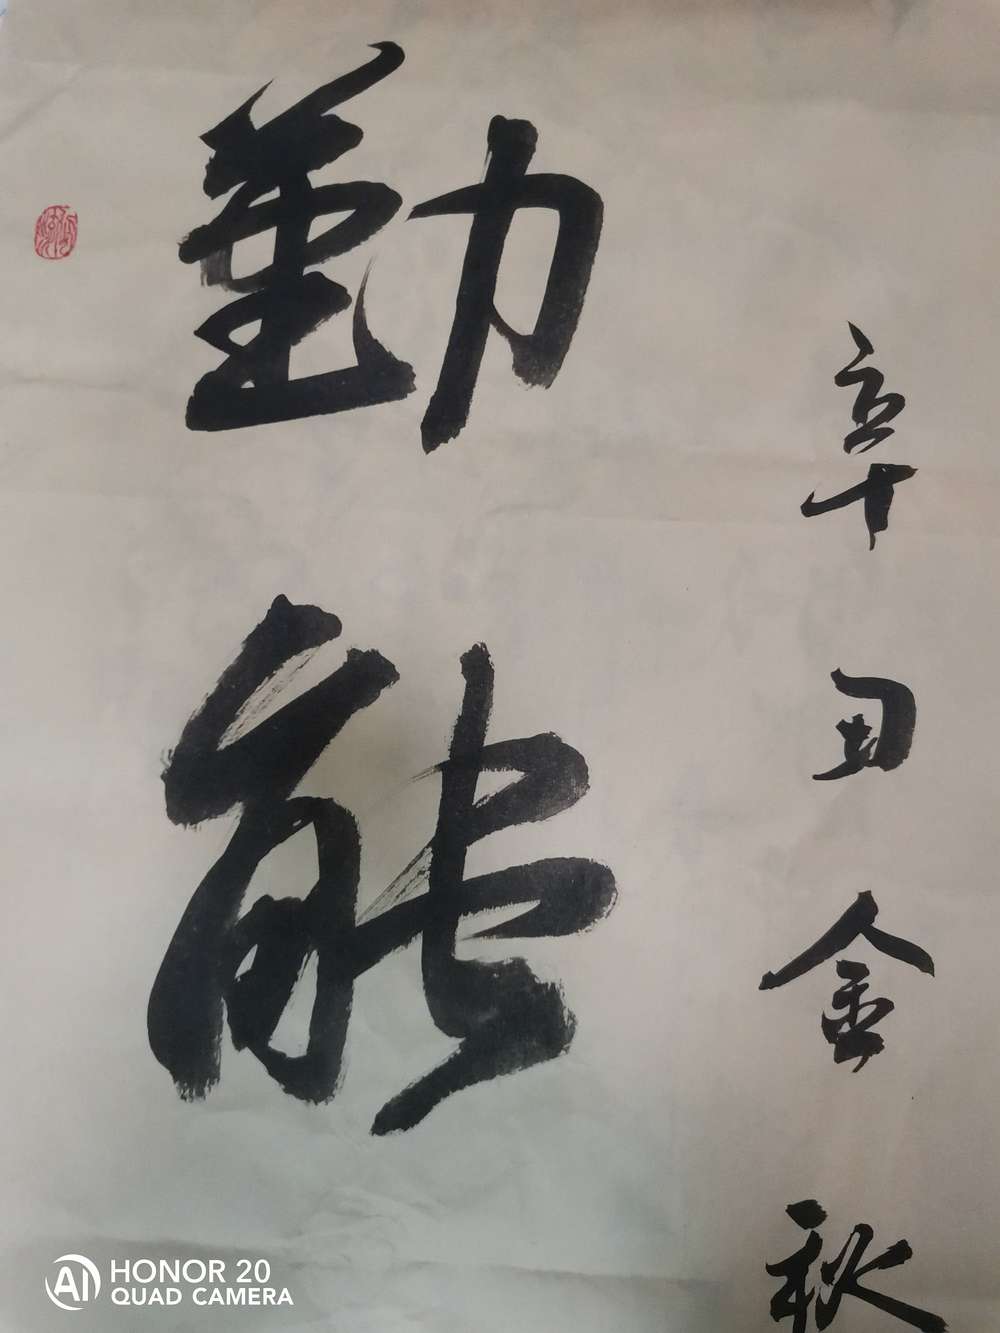 勤能
辛丑金秋
HONOR 20
QUAD CAMERA